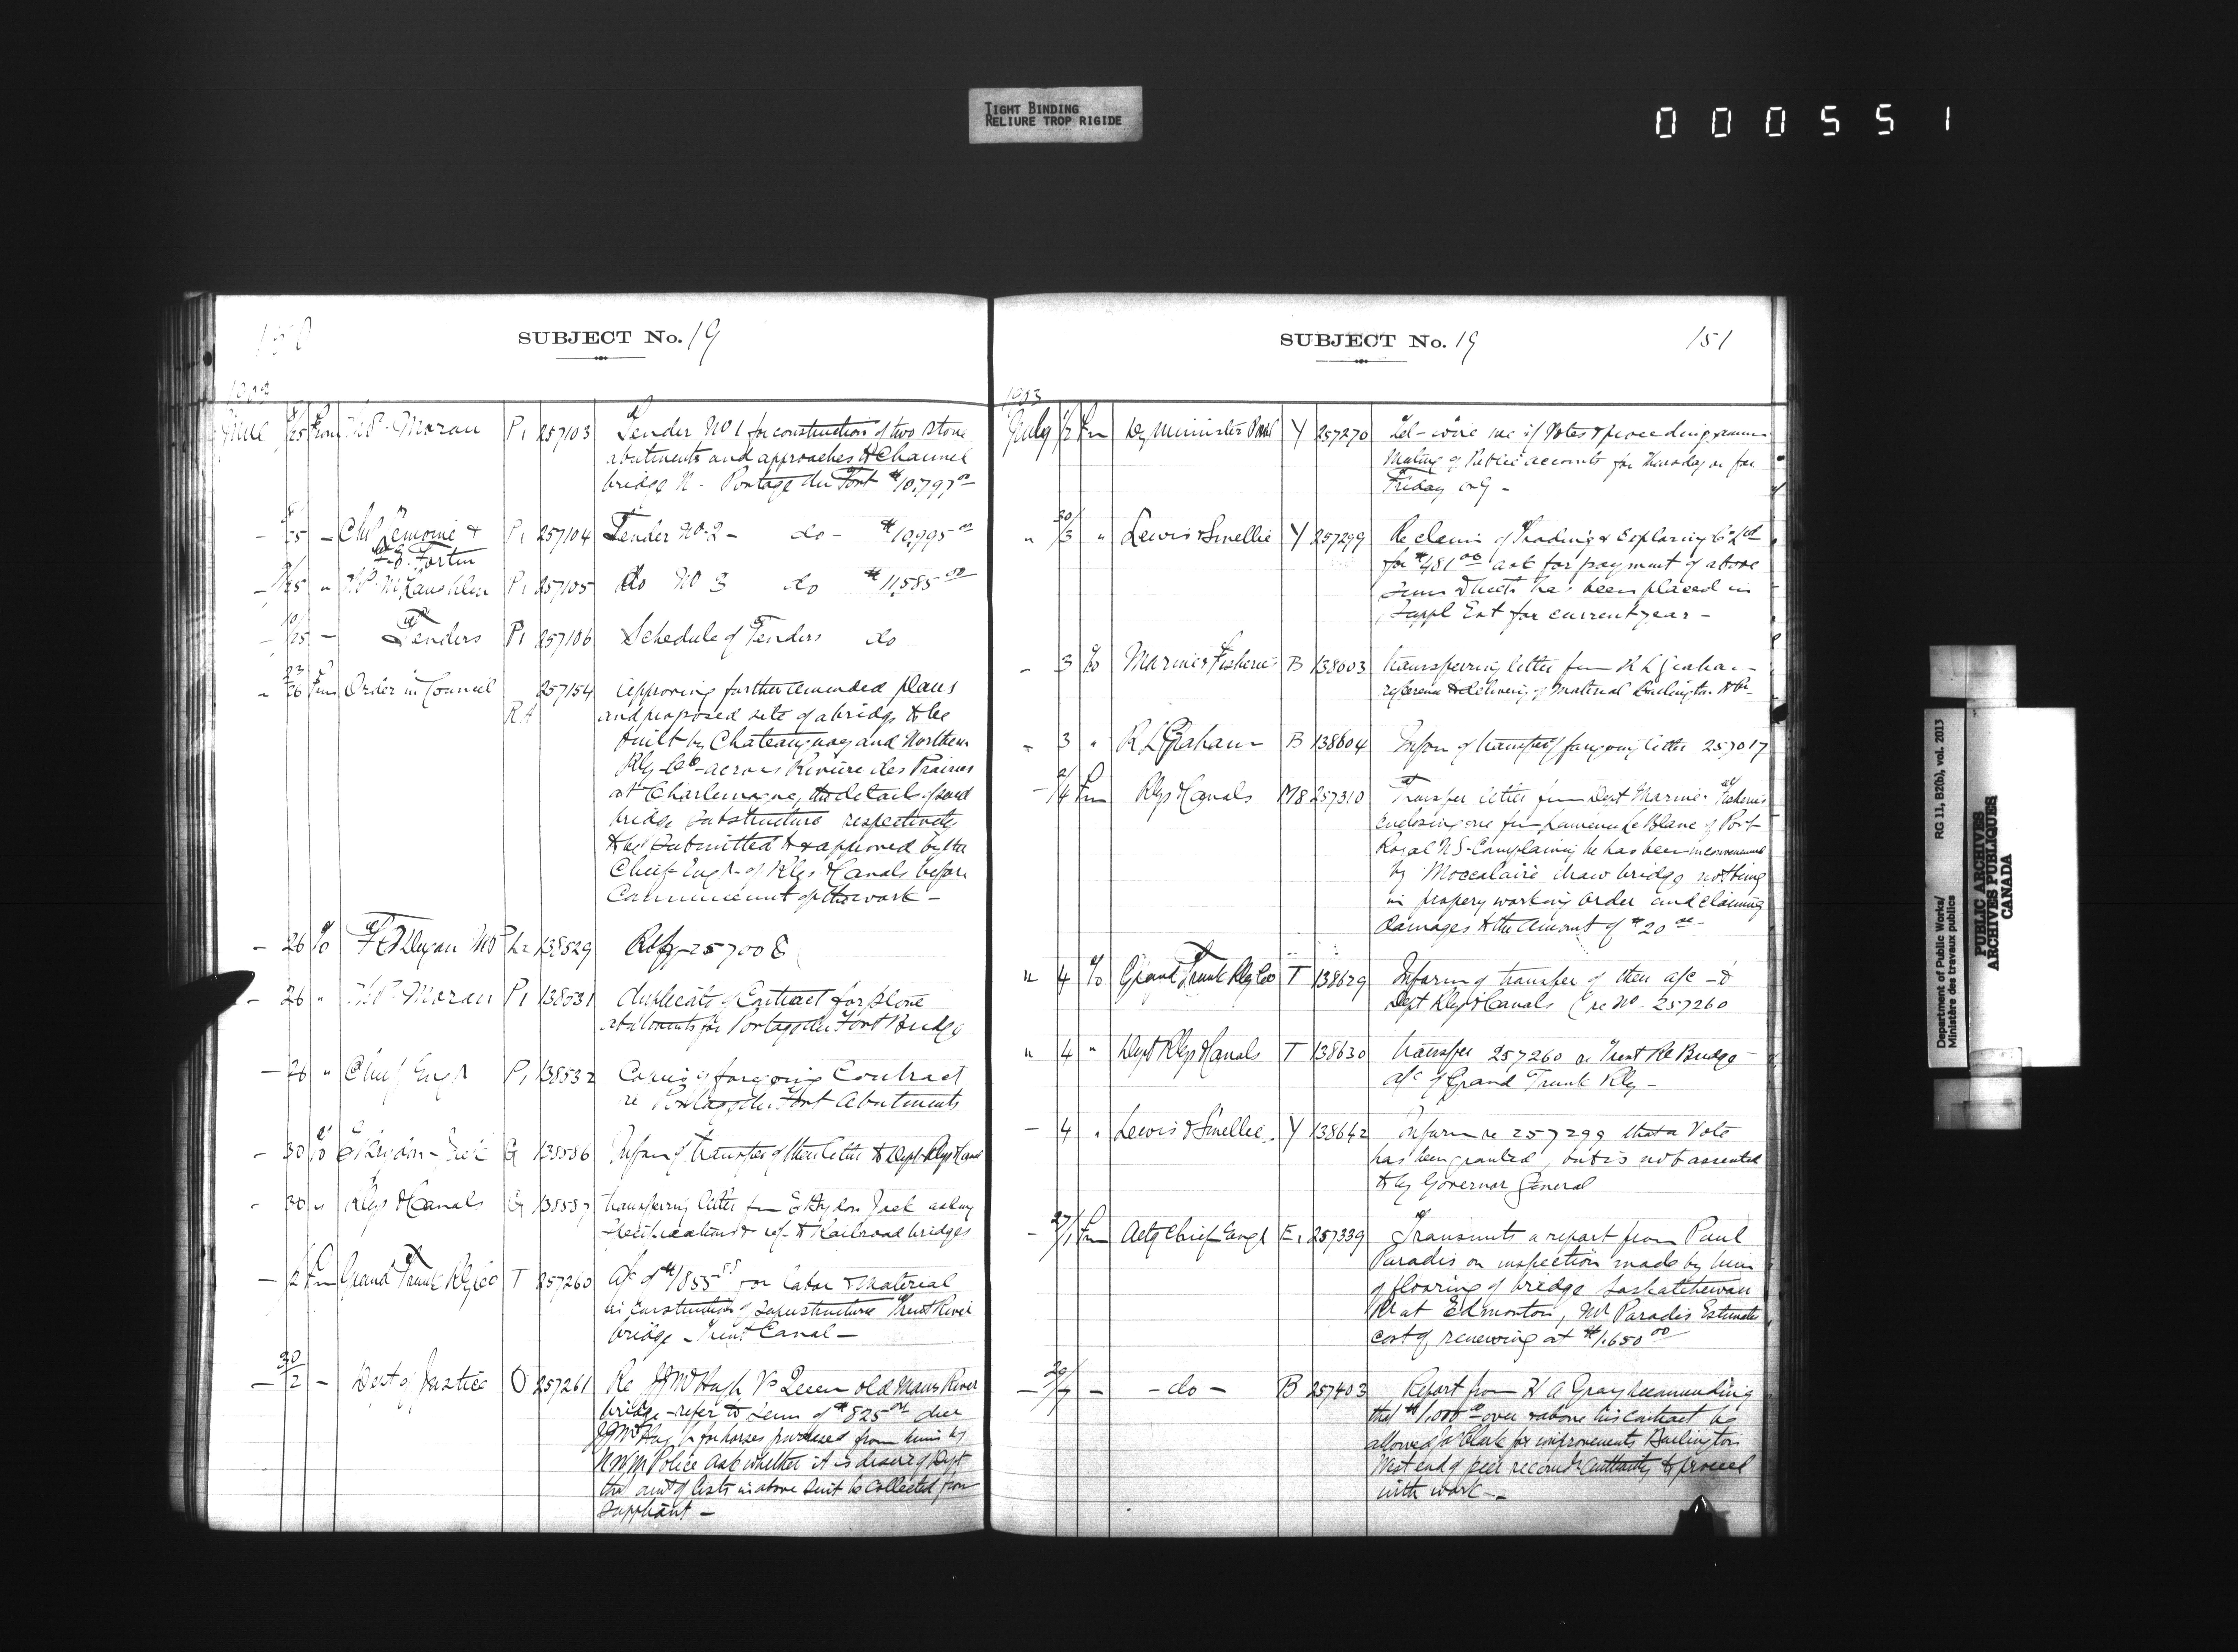 TIGHT BINDING
RELIURE TROP RIGIDE
000551
150
SUBJECT No. 19
June 8/25 From H P Moran P1 257103 Tender No 1 for construction of two stone
abutments and approaches to Channel
bridge N - Portage du Fort $10,797 00
- 8/25 - Chs Lemoine & P1 257104 Tender No 2 - do - $10,995 00
Fortin
- 8/25 " McLaughlin P1 257105 do No 3 do $11,585 00
- 10/25 - Tenders P1 257106 Schedule of Tenders do
- 23/26 From Order in Council 257154 Approving further amended plans
and proposed site of a bridge to be
built by Chateauguay and Northern
Rly Co - across Riviere des Prairies
at Charlemagne, the details of said
bridge substructure respectively
to be submitted to & approved by the
Chief Engr of Rlys & Canals before
Commencement of the work -
- 26 To 138529 Refg 257008
- 26 " H P Moran P1 138531 duplicate of Contract for stone
abutments for Portage du Fort Bridge
- 26 " Chief Engr P1 138532 Copies of foregoing Contract
re Portage du Fort Abutments
- 30 To G 138586 Inform of transfer of their letter to Dept Rlys & Canals
- 30 " Rlys & Canals G 138587 transferring letter fm Jack asking
specifications & ref - to Railroad bridges
- /2 Fm Grand Trunk Rly Co T 257260 A/c of $1855 88 for labor & material
in construction of superstructure Trent River
bridge - Trent Canal -
- 30/2 - Dept of Justice O 257261 Re J J McHugh Vs Queen old Mans River
bridge - refer to sum of $825 00 due
J J McHugh for horses purchased from him by
N W M Police ask whether it is desire of Dept
that amt of Costs in above suit be collected from
suppliant -
SUBJECT No. 19
151
1903
July 1/2 Fm Dy Minister Y 257270 Tel - wire me if Votes & proceedings
Meeting of Public accounts for Thursday or for
Friday only -
" 30/3 " Lewis & Smellie Y 257299 Re claim of Trading & Exploring Co Ltd
for $481 00 ask for payment of above
sum & has been placed in
Suppl Est for current year -
- 3 To Marine & Fisheries B 138603 transferring letter from R L Graham -
reference to delivery of material Burlington
- 3 " R L Graham B 138604 Inform of transfer of foregoing letter 257017
- 2/4 Fm Rlys & Canals M8 257310 Transfer letter from Dept Marine & Fisheries
Enclosing one fm LeBlanc of Port
Royal N S - Complaining he has been inconvenienced
by draw bridge not being
in proper working order and claiming
damages to the amount of $20 00
" 4 To Grand Trunk Rly Co T 138629 Inform of transfer of their a/c - to
Dept Rlys & Canals (re No - 257260
" 4 " Dept Rlys & Canals T 138630 transfer 257260 re Trent Rr Bridge -
a/c of Grand Trunk Rly -
- 4 " Lewis & Smellie Y 138642 Inform re 257299 that a Vote
has been granted, but is not assented
to by Governor General
- 27/1 Fm Actg Chief Engr E1 257339 Transmits a report from Paul
Paradis on inspection made by him
of flooring of bridge Saskatchewan
Rr at Edmonton, Mr Paradis Estimates
cost of renewing at $1,650 00
- 29/7 - - do - B 257403 Report from H A Gray recommending
that $1,000 00 over & above his contract be
allowed Clark for improvements Burlington
West end of pier recomds Authority to proceed
with work -
Department of Public Works/
Ministère des travaux publics
RG 11, B2(b), vol. 2013
PUBLIC ARCHIVES
ARCHIVES PUBLIQUES
CANADA